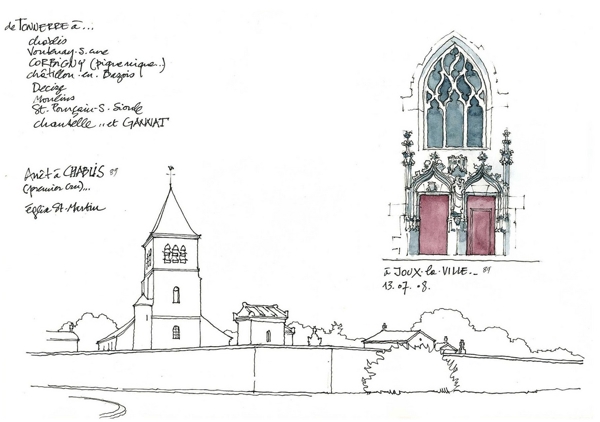 de TONNERRE à...
chablis
Voutenay.s.cure
CORBIGNY (pique nique..)
châtillon.en.Bazois
Decize
Moulins
St. Pourçain-S. Sioule
chantelle...et GANNAT
Arrêt à CHABLIS 89
(premier cru)...
Église St. Martin
à JOUX-la-VILLE._ 89
13.07.08.